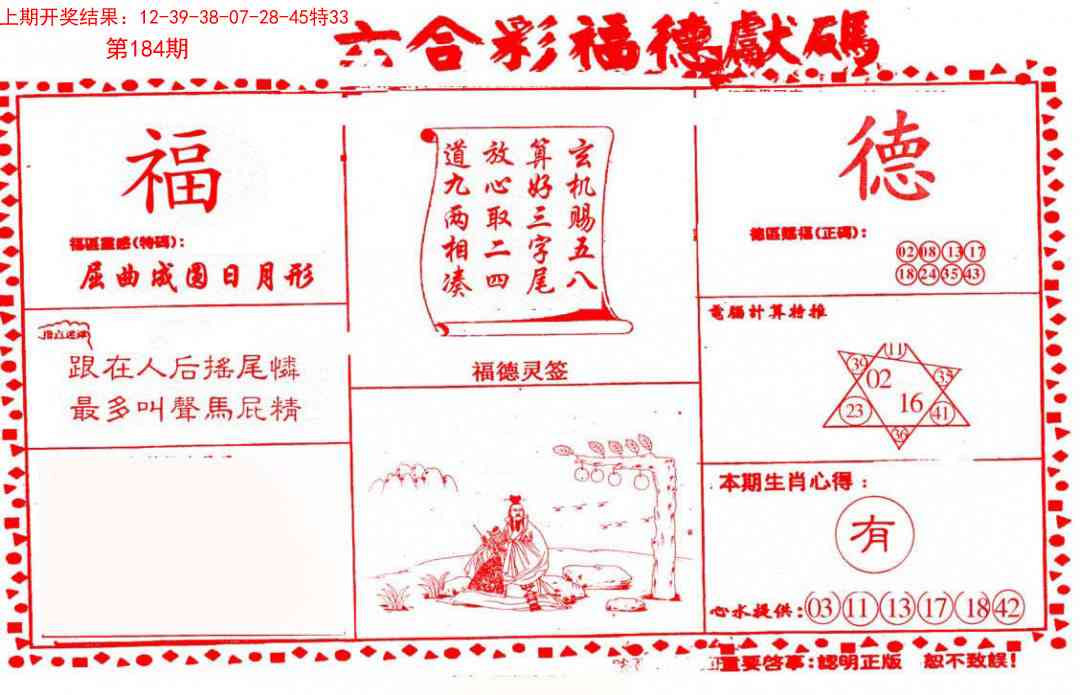 上期开奖结果：12-39-38-07-28-45特33
第184期
六合彩福德獻碼
福
福區靈感(特碼)：
屈曲成圆日月形
指点迷津
跟在人后摇尾憐
最多叫聲馬屁精
玄机赐五八
算好三字尾
放心取二四
道九两相凑
福德灵签
德
德區賜福(正碼)：
02 08 13 17
18 24 35 43
電腦計算特推
11
39 02 35
23 16 41
36
本期生肖心得：
有
心水提供：03 11 13 17 18 42
重要啓事：認明正版 恕不致誤！